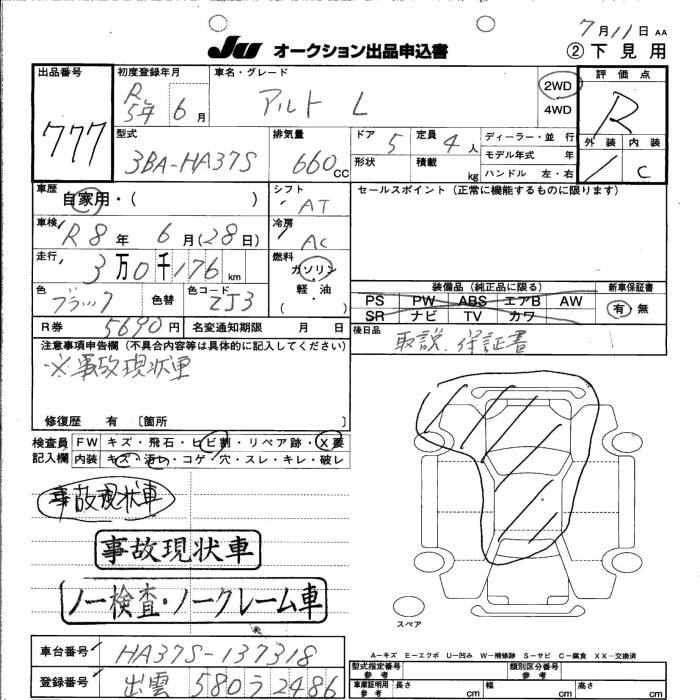 7月11日 AA
JU オークション出品申込書 ②下見用
出品番号 初度登録年月 車名・グレード 評価点
777 R5年6月 アルト L 2WD 4WD R
型式 排気量 ドア 定員 ディーラー・並行 外装 内装
3BA-HA37S 660CC 5 4人 モデル年式 年 C
形状 積載 kg ハンドル 左・右
車歴 自家用・( ) シフト AT セールスポイント(正常に機能するものに限ります)
車検 R8年6月(28日) 冷房 AC
走行 3万0千176km 燃料 ガソリン 軽・油 ( )
色 ブラック 色替 色コード ZJ3
装備品(純正品に限る) 新車保証書
PS PW ABS エアB AW 有 無
SR ナビ TV カワ
R券 5690円 名変通知期限 月 日 後日品 取説、保証書
注意事項申告欄(不具合内容等は具体的に記入してください)
※事故現状車
修復歴 有 〔箇所 〕
検査員 FW キズ・飛石・ヒビ割・リペア跡・X要
記入欄 内装 キズ・汚れ・コゲ・穴・スレ・キレ・破レ
事故現状車
事故現状車
ノー検査・ノークレーム車
スペア
車台番号 HA37S-137318
登録番号 出雲 580 う 2486
A-キズ E-エクボ U-凹み W-補修跡 S-サビ C-腐食 XX-交換済
型式指定番号 参考 類別区分番号 参考
車庫証明用 参考 長さ cm 幅 cm 高さ cm